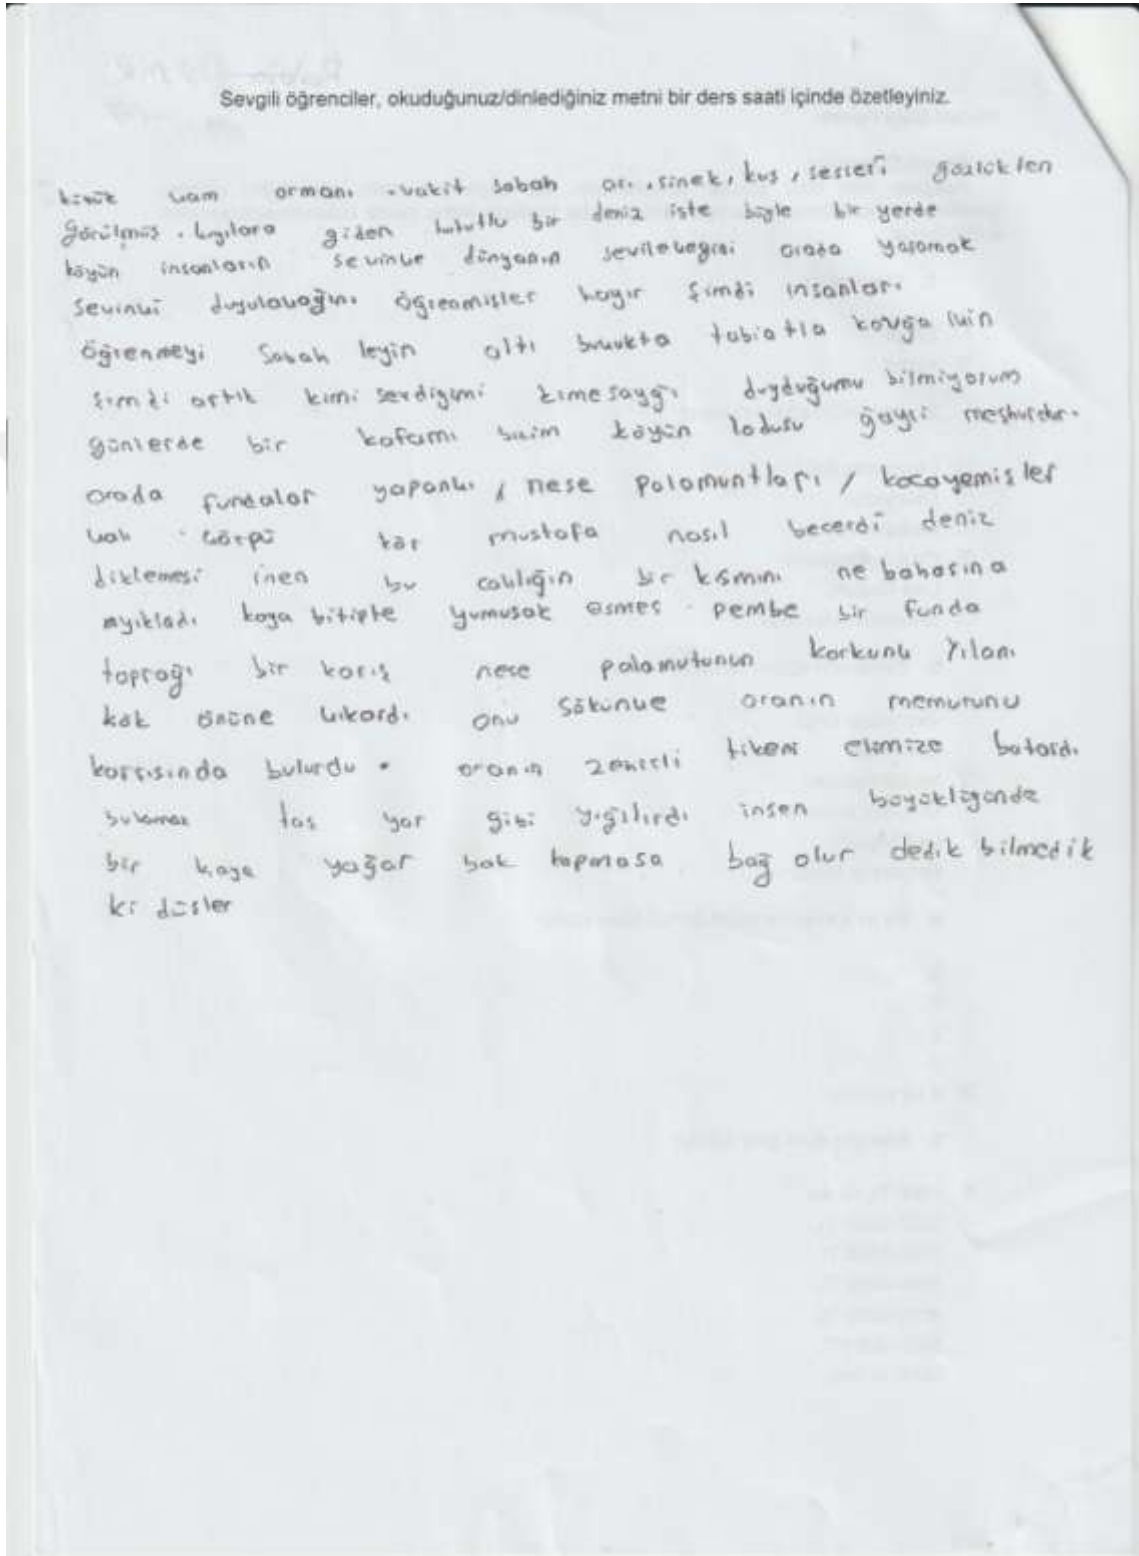 Sevgili öğrenciler, okuduğunuz/dinlediğiniz metni bir ders saati içinde özetleyiniz.
çam ormanı . vakit sabah arı , sinek , kuş , sesleri gözlükten
görülmüş . kıyılara giden bulutlu bir deniz işte böyle bir yerde
köyün insanların sevinçe dünyanın sevileceğini orada yaşamak
sevinci duyulacağını öğrenmişler hayır şimdi insanları
öğrenmeyi Sabah leyin altı buçukta tabiatla kavga için
şimdi artık kimi serdigimi kime saygı duyduğumu bilmiyorum
günlerde bir kafamı bizim köyün lodusu ğayri meşhurdur.
orada fundalar yapanlı , nese palamuntları , kocayemişler
kör mustafa nasıl becerdi deniz
diklemesi inen bu calılığın bir kısmını ne bahasına
ayıkladı koya bitipte yumuşak esmes pembe bir funda
toprağı bir karış nese palamutunun korkunç Yılanı
kök önüne çıkardı onu sökünce oranın memurunu
karşısında bulurdu . oranın zehirli tikeni elimize batardı
taş yar gibi yığılırdı insen böyüklügende
bir kaya yağar bak kopmasa bağ olur dedik bilmedik
ki düşler